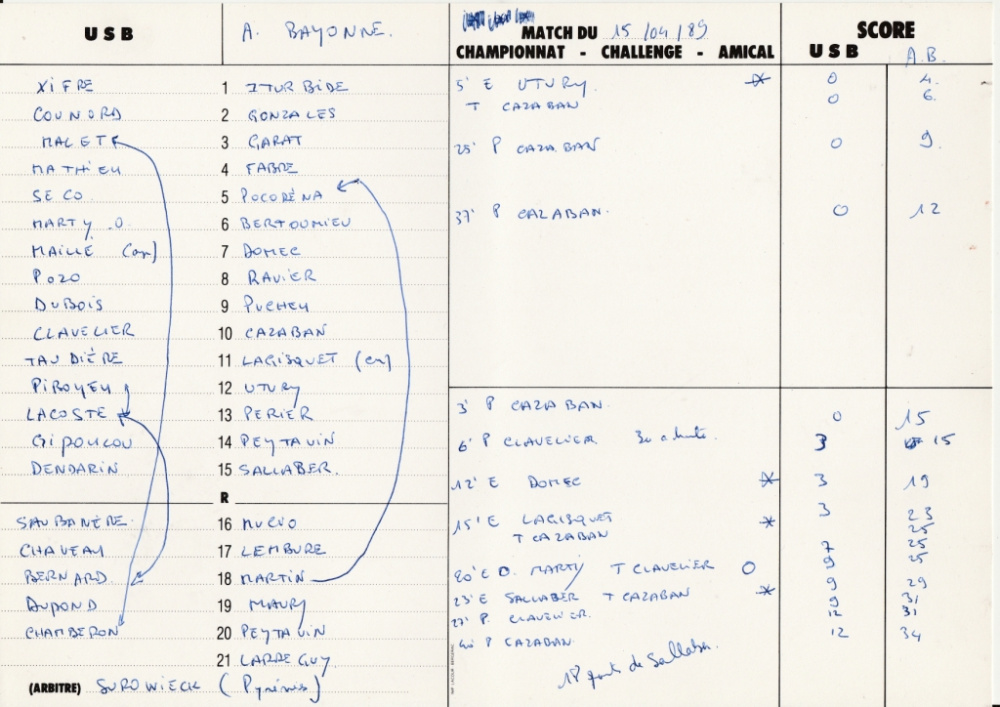 USB
A. BAYONNE.
MATCH DU 15/04/89
CHAMPIONNAT - CHALLENGE - AMICAL
SCORE
USB A.B.
XIFRE 1 ITURBIDE
COUNORD 2 GONZALES
MALET 3 GARAT
MATHIEU 4 FABRE
SECO 5 POCORENA
MARTY .O. 6 BERTOUMIEU
MAILLE (cap) 7 DOMEC
POZO 8 RAVIER
DUBOIS 9 PUCHEU
CLAVELIER 10 CAZABAN
TAUDIÈRE 11 LAGISQUET (cap)
PIROYEU 12 UTURY
LACOSTE 13 PERIER
GIPOULOU 14 PEYTAVIN
DENDARIN 15 SALLABER.
R
SAUBANÈRE 16 MUCVO
CHAVEAU 17 LEMBURE
BERNARD 18 MARTIN
DUPOND 19 MAURY
CHAMBERON 20 PEYTAVIN
21 LARREGUY
(ARBITRE) SUROWIECK (Pyrénées)
5' E UTURY 0 4.
T CAZABAN 0 6.
25' P CAZABAN 0 9.
37' P CAZABAN. 0 12
3' P CAZABAN. 0 15
6' P CLAVELIER 3 15
12' E DOMEC 3 19
15' E LAGISQUET 3 23
T CAZABAN 25
20' E O. MARTY T CLAVELIER O 7 25
9 25
23' E SALLABER T CAZABAN 9 29
9 31
27' P. CLAVELIER. 12 31
40' P CAZABAN 12 34
18 points de Sallaber.